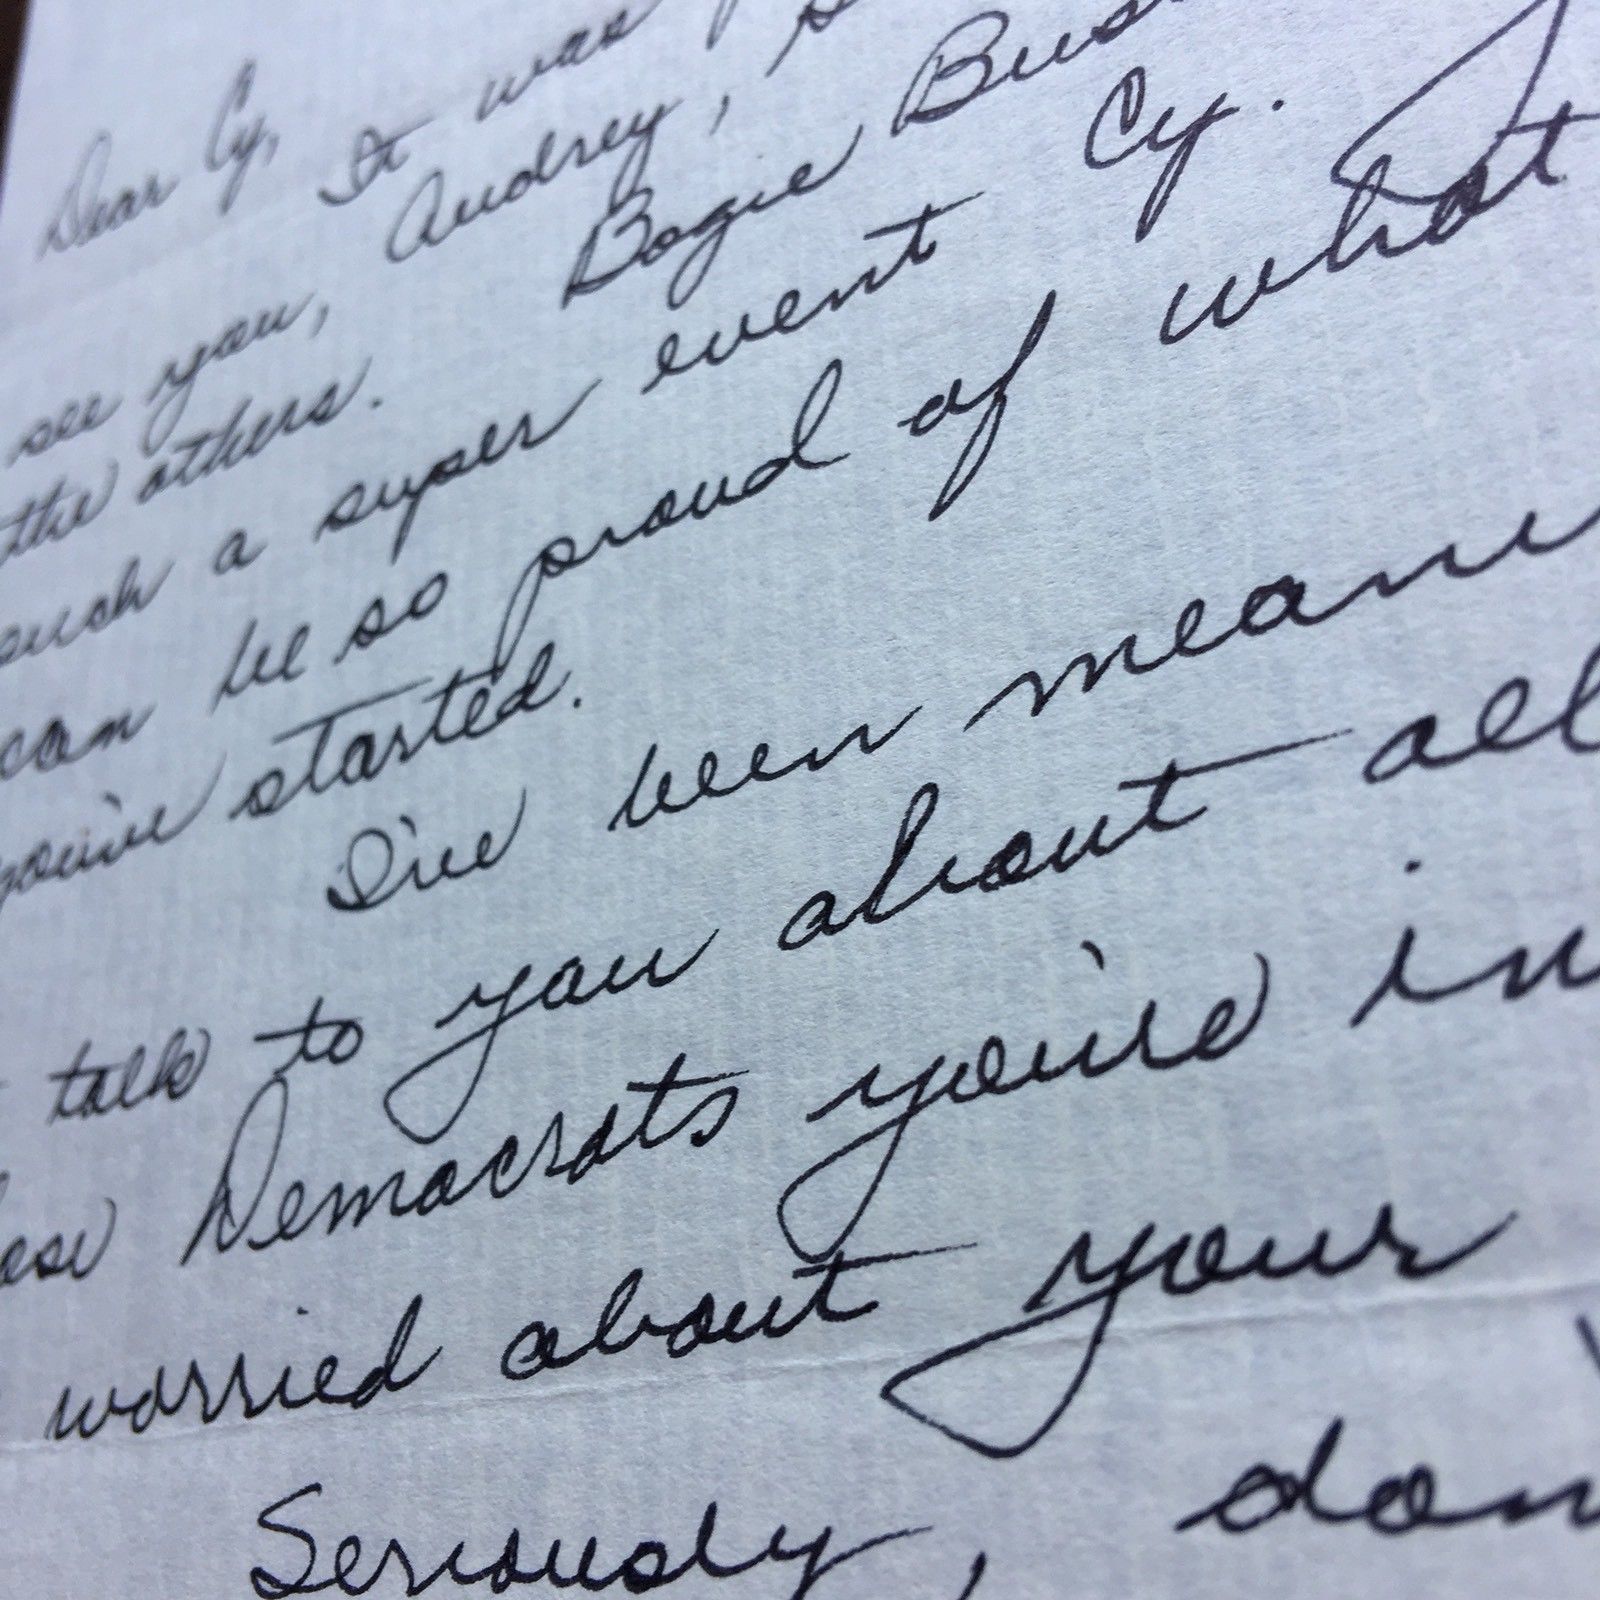 Dear Cy,
It was
see you, Audrey,
the others. Bogie Bus
such a super event Cy.
can be so proud of what
you've started.
I've been mean
talk to you about all
ese Democrats you're in
worried about your
Seriously, don